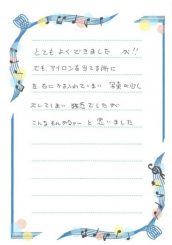 とてもよくできました が!!
でも、アイロンを当てる所に
左右に
入れていまい 写真の少し
ズレてしまい 残念でしたが
こんなもんかなぁーと 思いました